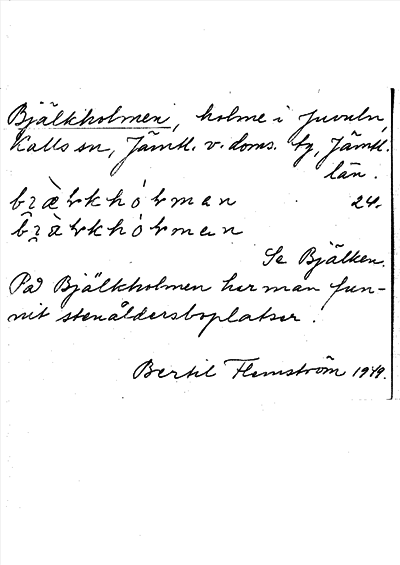 Bjälkholmen, holme i Juveln,
Kalls sn, Jämtl. v. doms. tg, Jämtl.
län.
24.
Se Bjälken.
På Bjälkholmen har man fun-
nit stenåldersboplatser.
Bertil Flemström 1979.